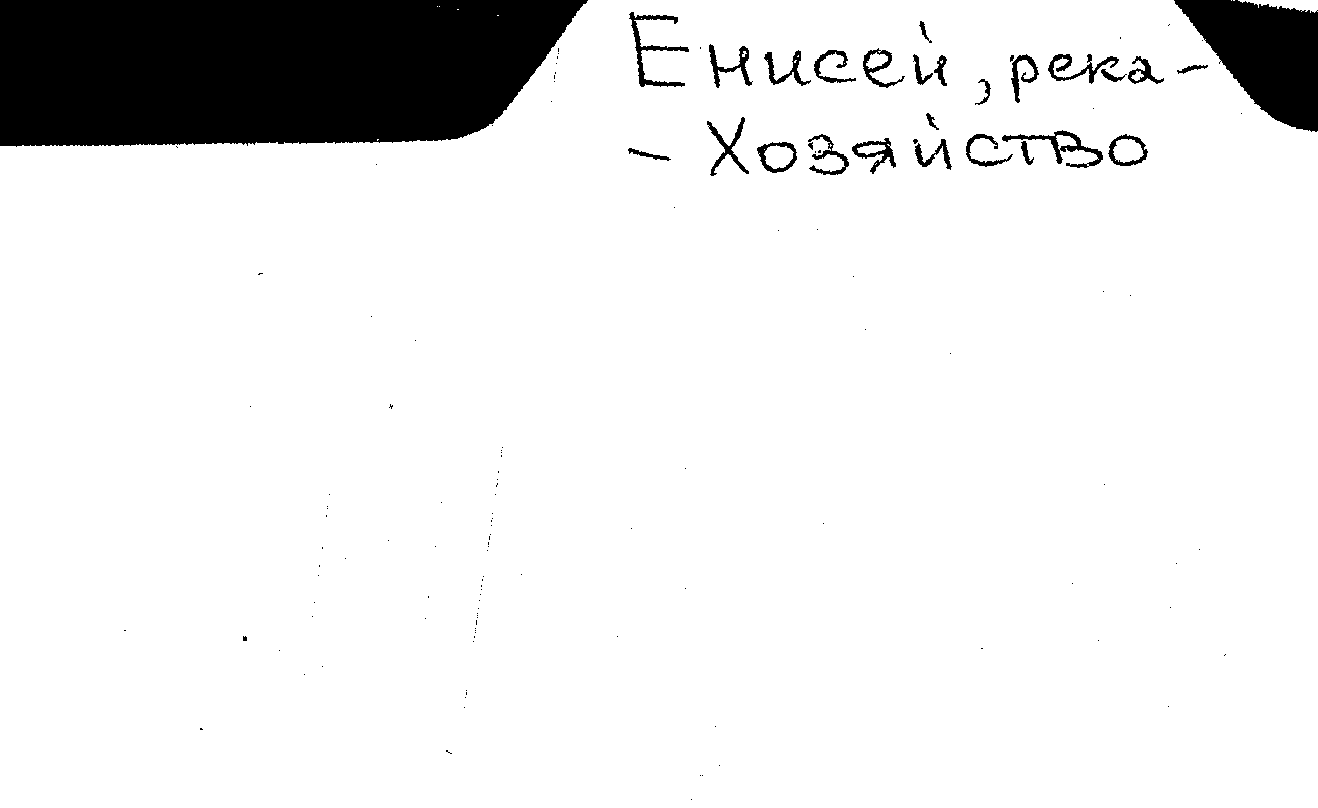 Енисей, река -
- Хозяйство